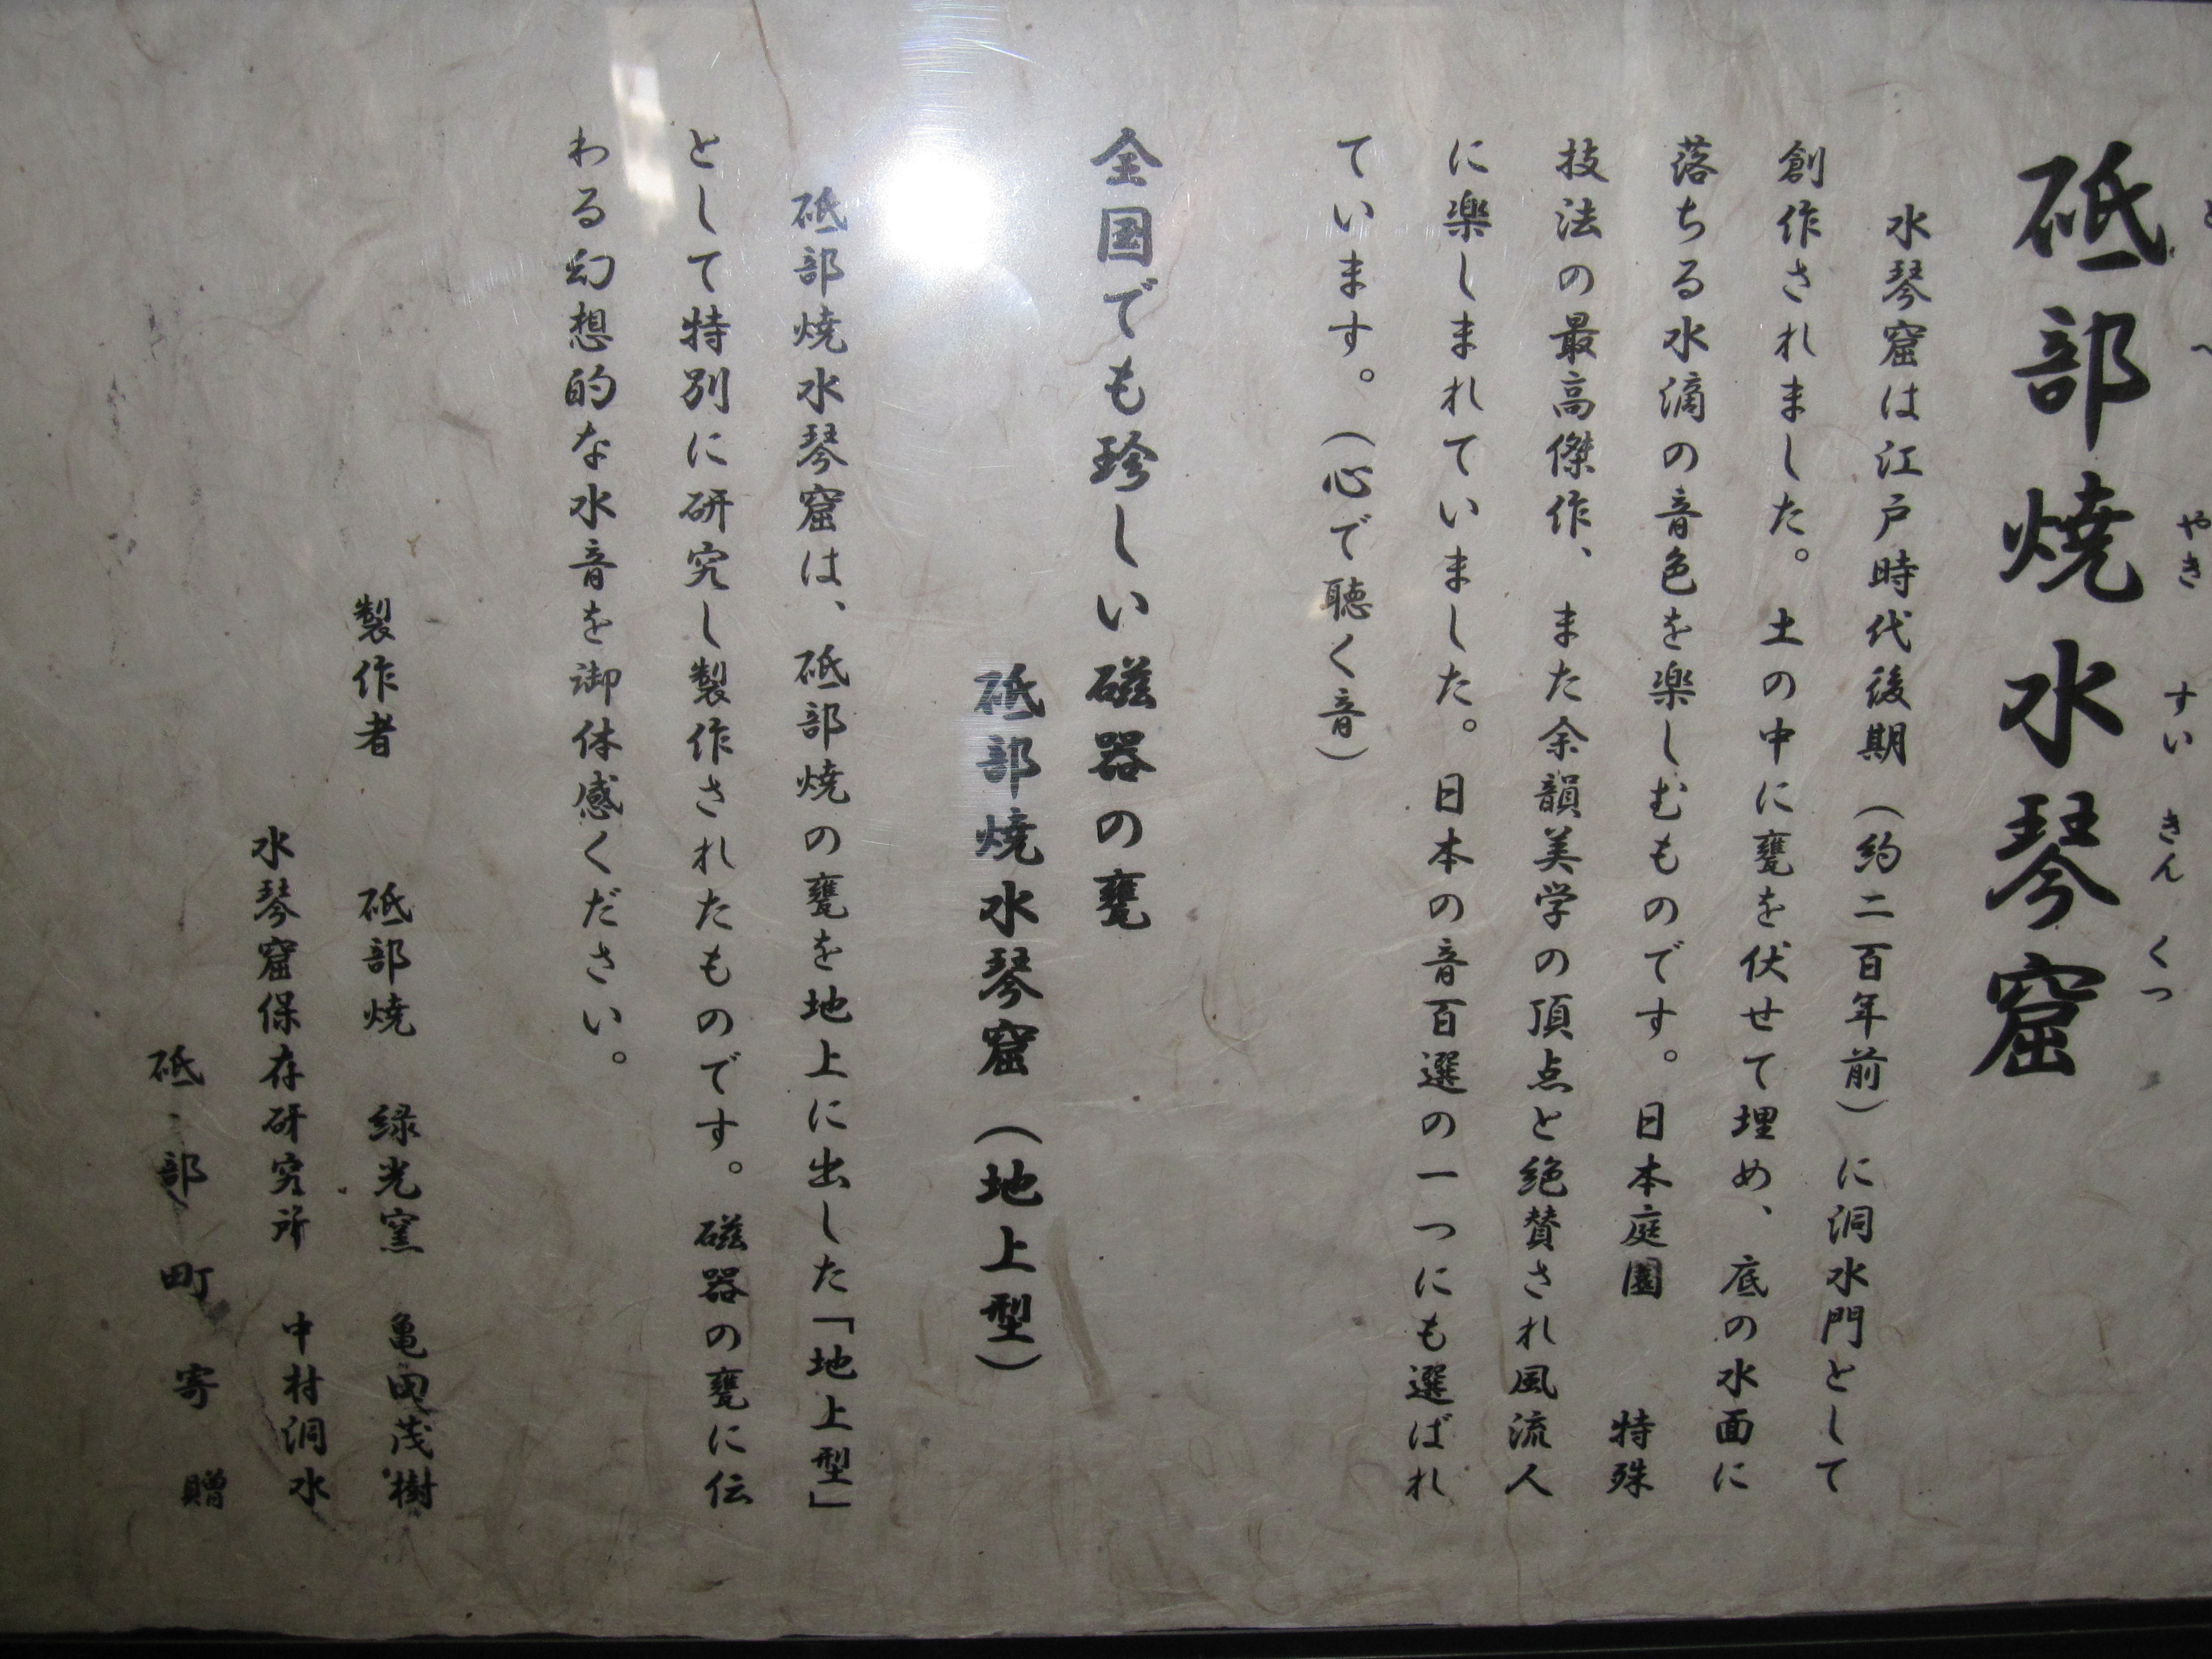 砥部焼水琴窟
と べ やき すい きん くつ
水琴窟は江戸時代後期（約二百年前）に洞水門として
創作されました。土の中に甕を伏せて埋め、底の水面に
落ちる水滴の音色を楽しむものです。日本庭園 特殊
技法の最高傑作、また余韻美学の頂点と絶賛され風流人
に楽しまれていました。日本の音百選の一つにも選ばれ
ています。（心で聴く音）
全国でも珍しい磁器の甕
砥部焼水琴窟（地上型）
砥部焼水琴窟は、砥部焼の甕を地上に出した「地上型」
として特別に研究し製作されたものです。磁器の甕に伝
わる幻想的な水音を御体感ください。
製作者 砥部焼 緑光窯 亀田茂樹
水琴窟保存研究所 中村洞水
砥部町寄贈